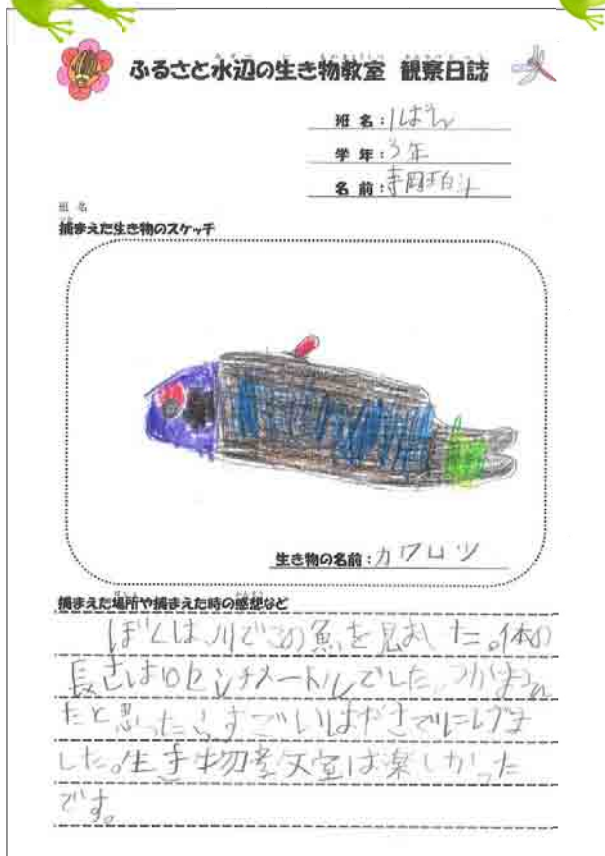 ふるさと水辺の生き物教室 観察日誌
班名:1ぱん
学年:3年
名前:寺岡
班名
捕まえた生き物のスケッチ
生き物の名前:カワムツ
捕まえた場所や捕まえた時の感想など
ぼくは、川でこの魚を見ました。体の
長さは10センチメートルでした。つかまえ
たと思ったらすごいはやさでにげま
した。生き物教室は楽しかった
です。